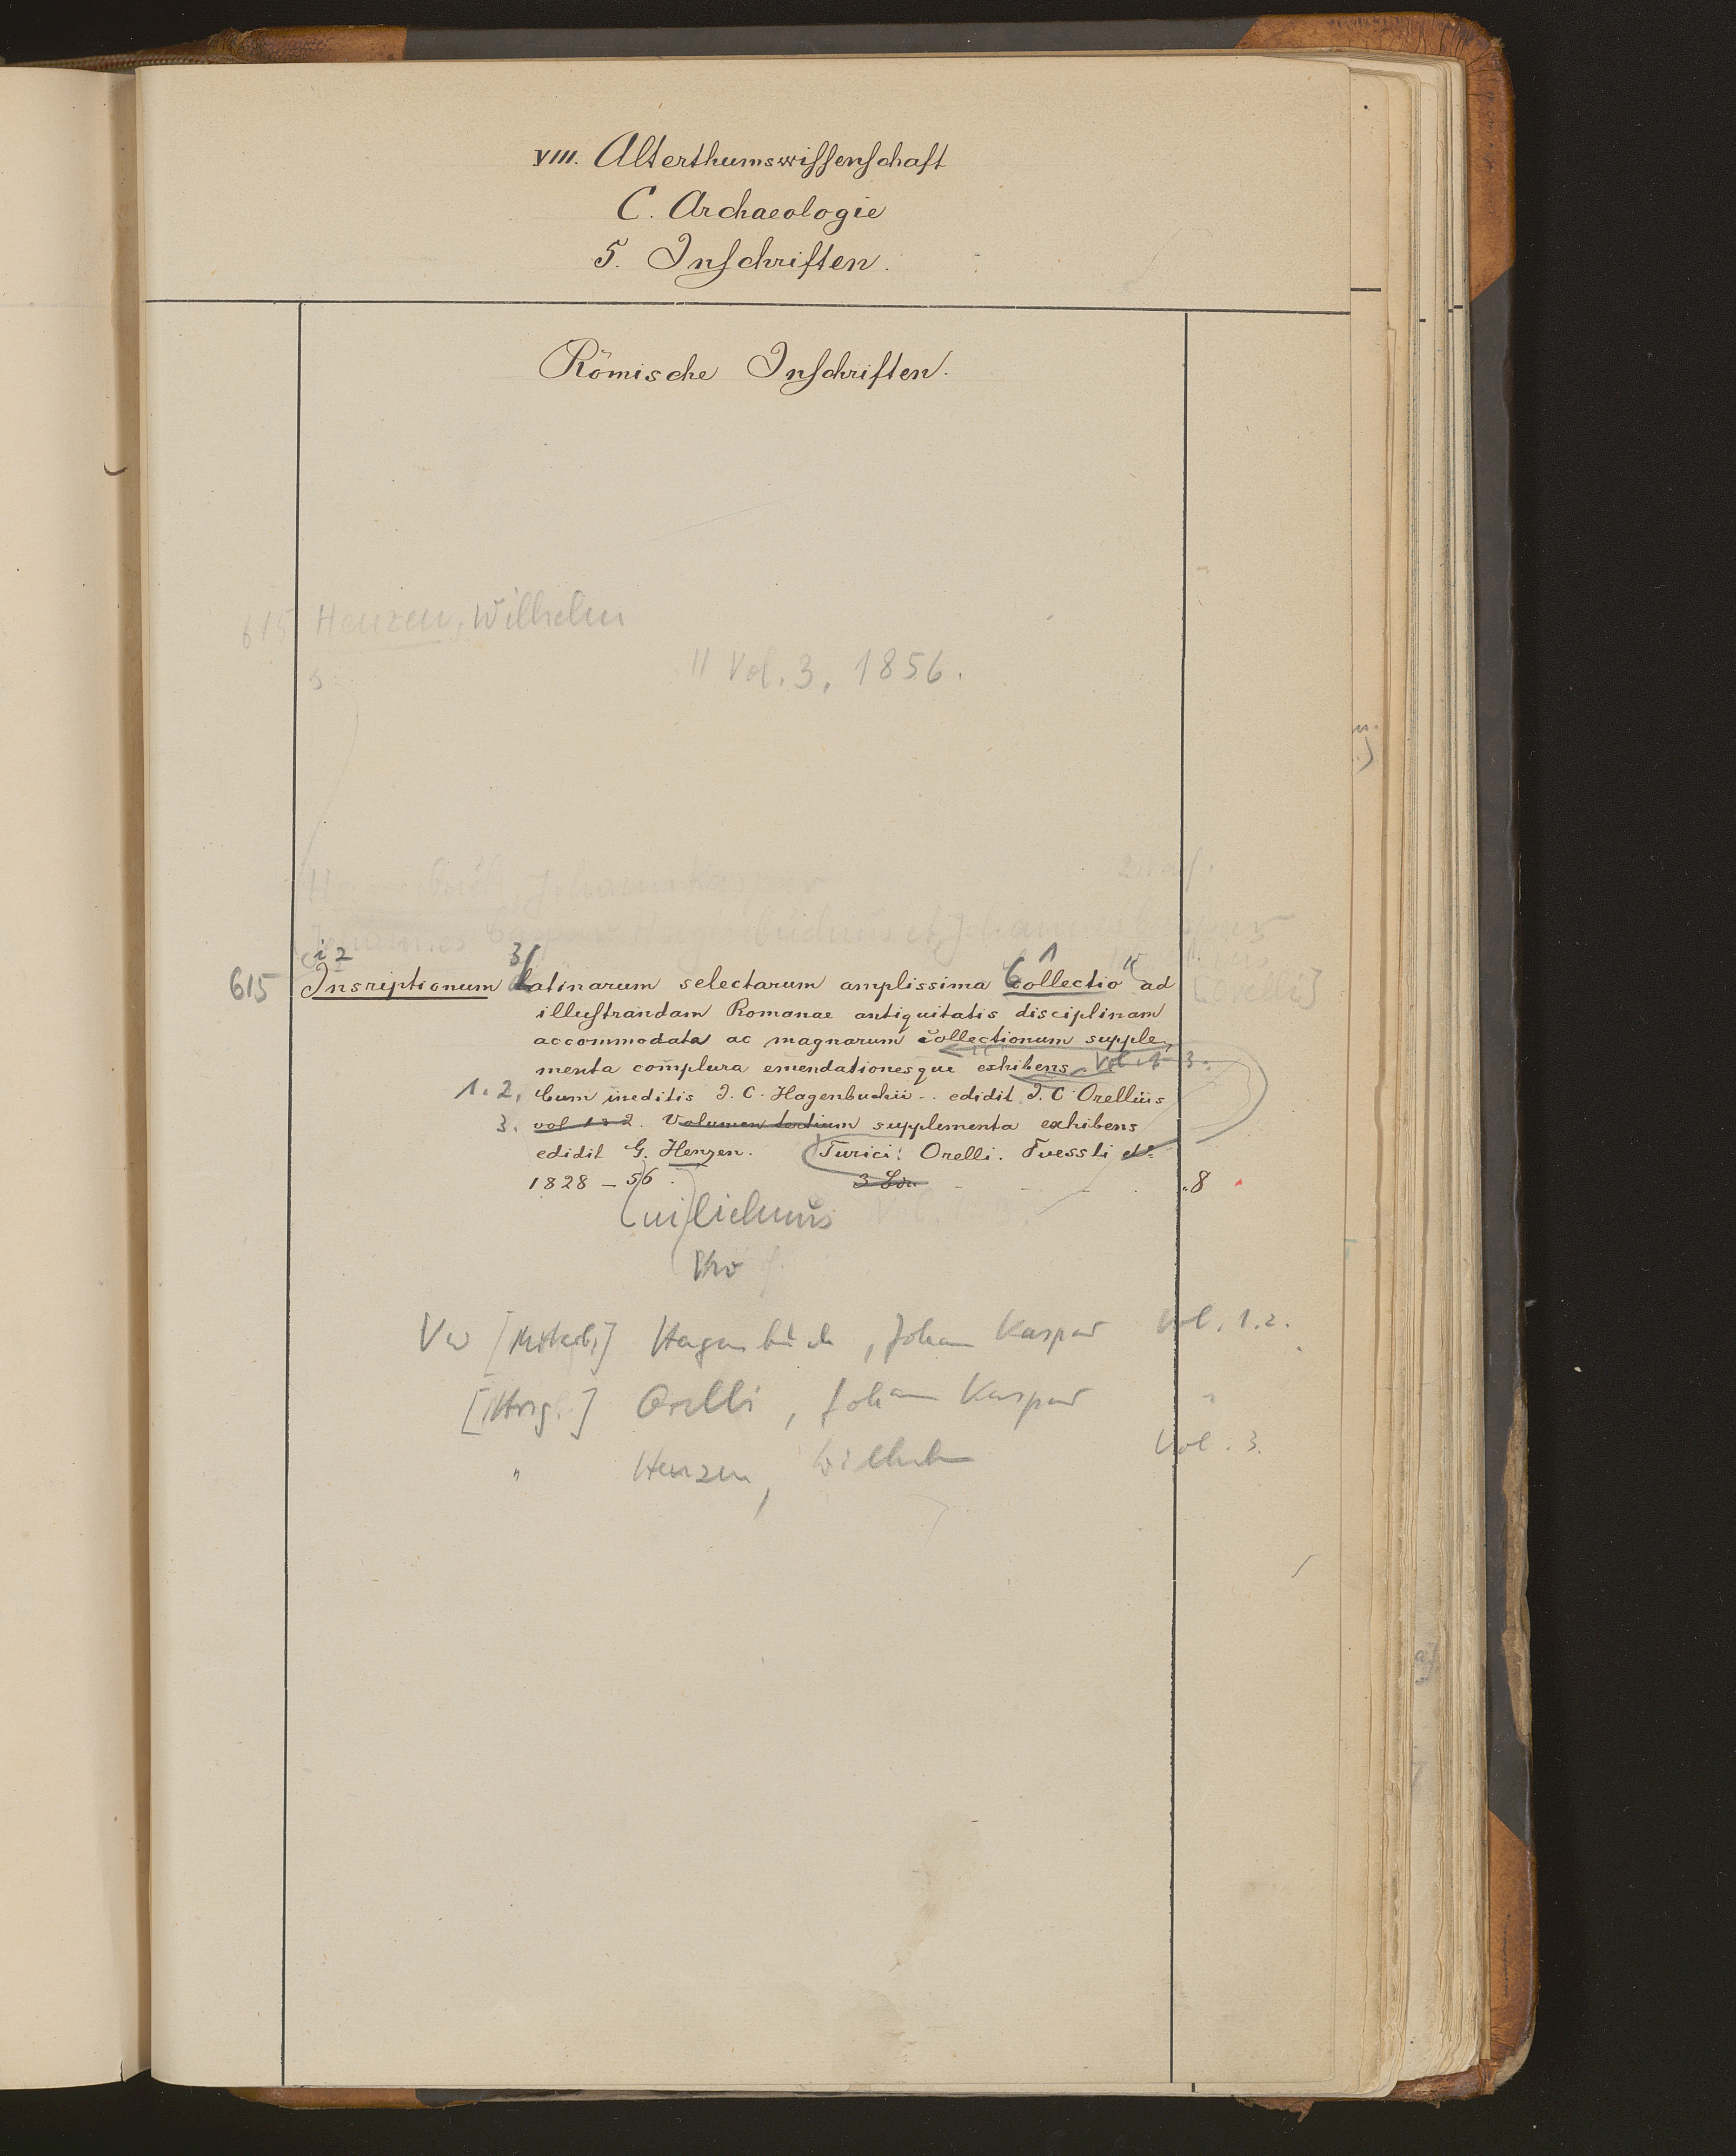 VIII. Alterthumswissenschaft
C. Archaeologie
5. Inschriften.
Römische Inschriften.
615 Henzen, Wilhelm
" Vol. 3, 1856.
Hagenbuch, Johann Kaspar
Johannes Caspar Hagenbuchius et Johannes Caspar
i 2 3 1
615 Insriptionum Latinarum selectarum amplissima Collectio ad [Orelli]
illustrandam Romanae antiquitatis disciplinam
accommodata ac magnarum collectionum supple-
menta complura emendationesque exhibens Vol. 1-3.
1. 2. Cum ineditis J. C. Hagenbuchii .. edidit J. C. Orellius
3. vol 1 2. Volumen tertium supplementa exhibens
edidit G. Henzen. Turici: Orelli. Fuessli et
1828 – 56. 3 8
Vw [Mitarb.] Hagenbuch, Johann Kaspar Vol. 1.2.
[Hrsg.] Orelli, Johann Kaspar "
" Henzen, Wilhelm Vol. 3.